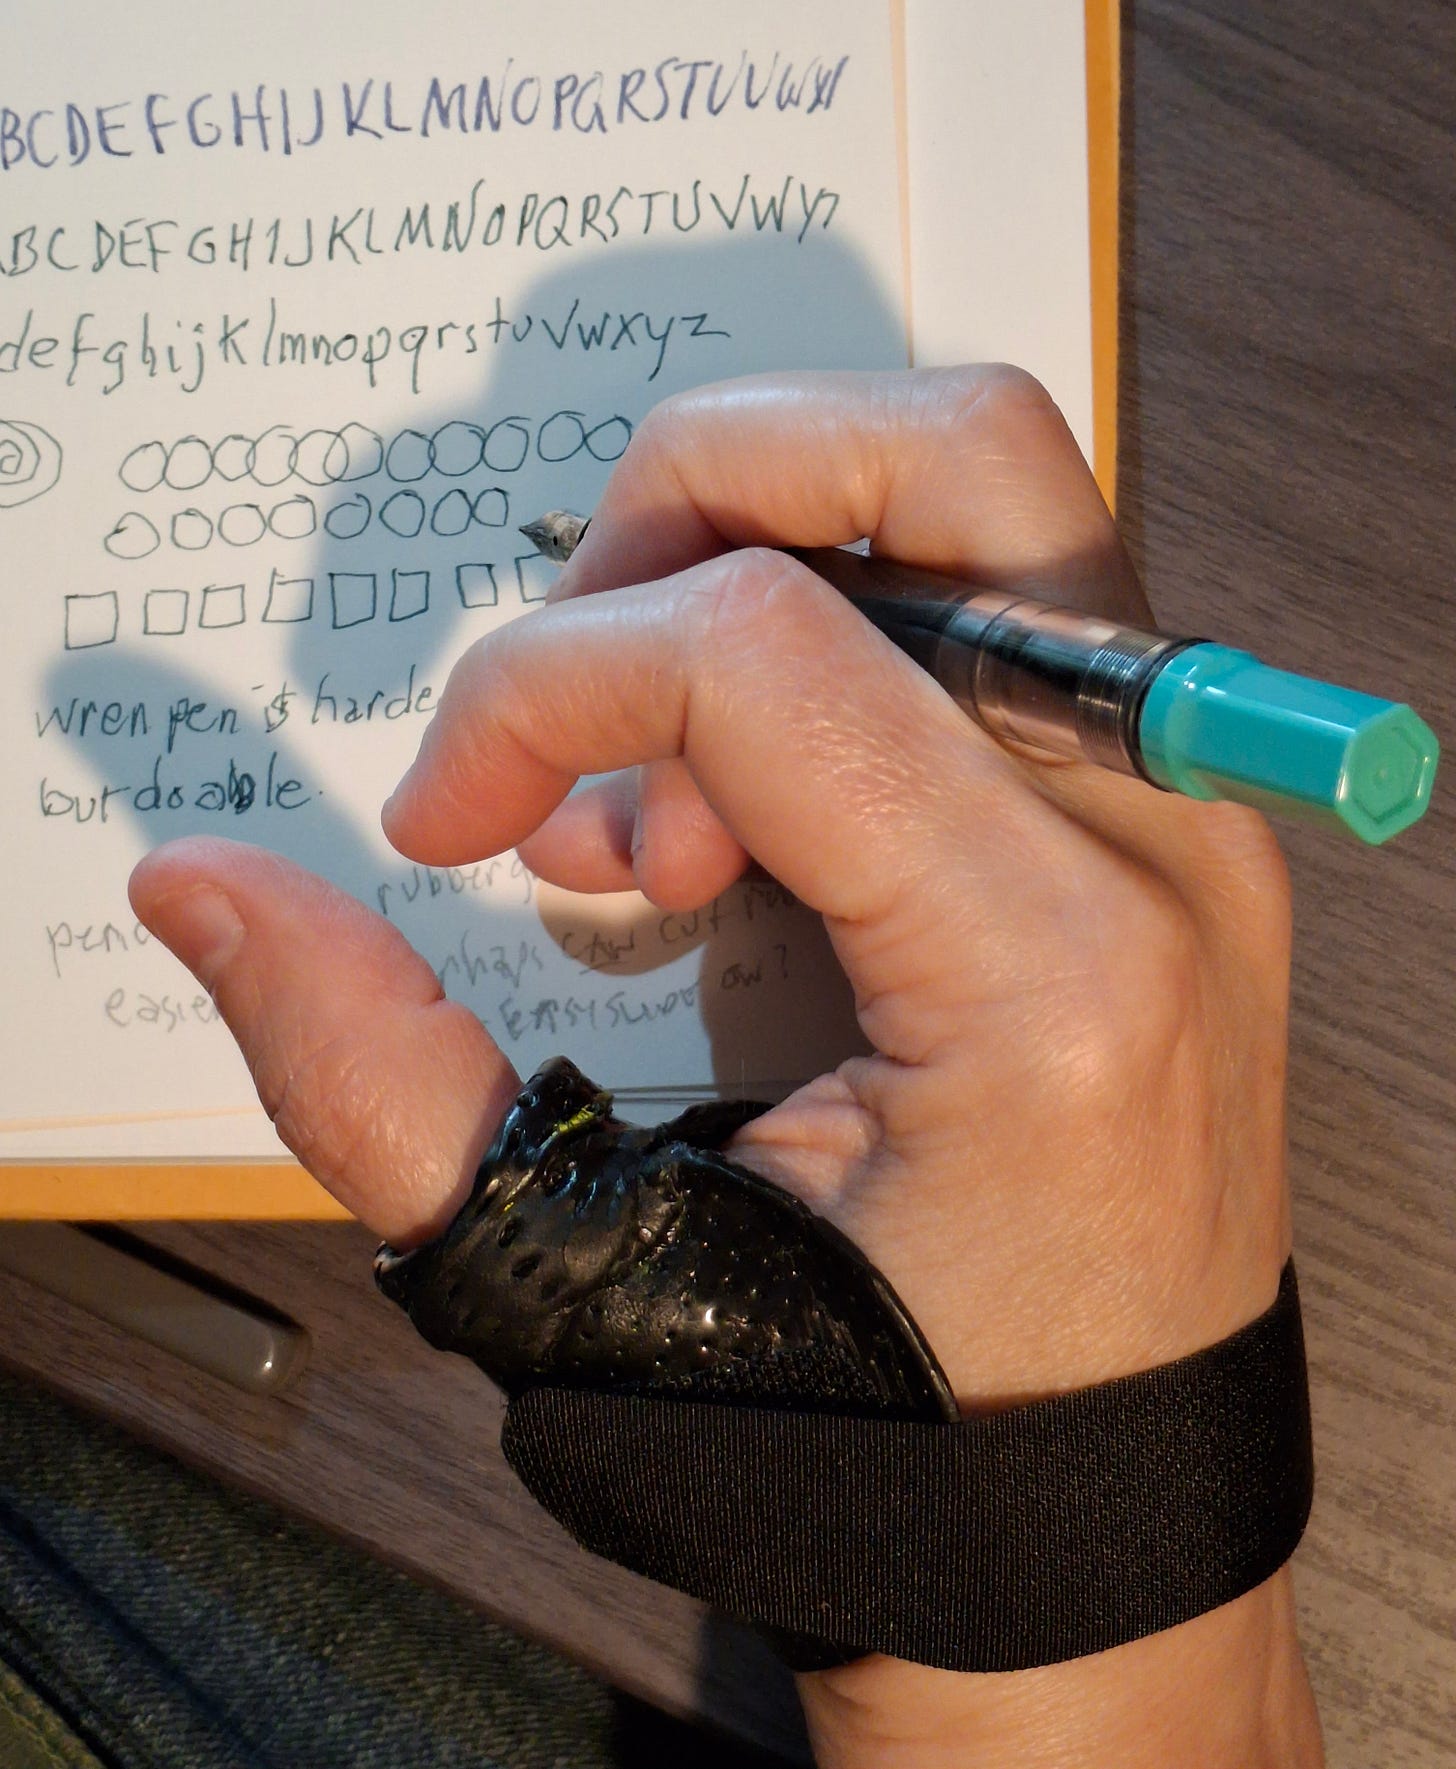 BCDEFGHIJKLMNOPQRSTUVWX
ABCDEFGHIJKLMNOPQRSTUVWYZ
defghijklmnopqrstuvwxyz
wren pen is harde
but doable.
rubber
cut
easie
ow?